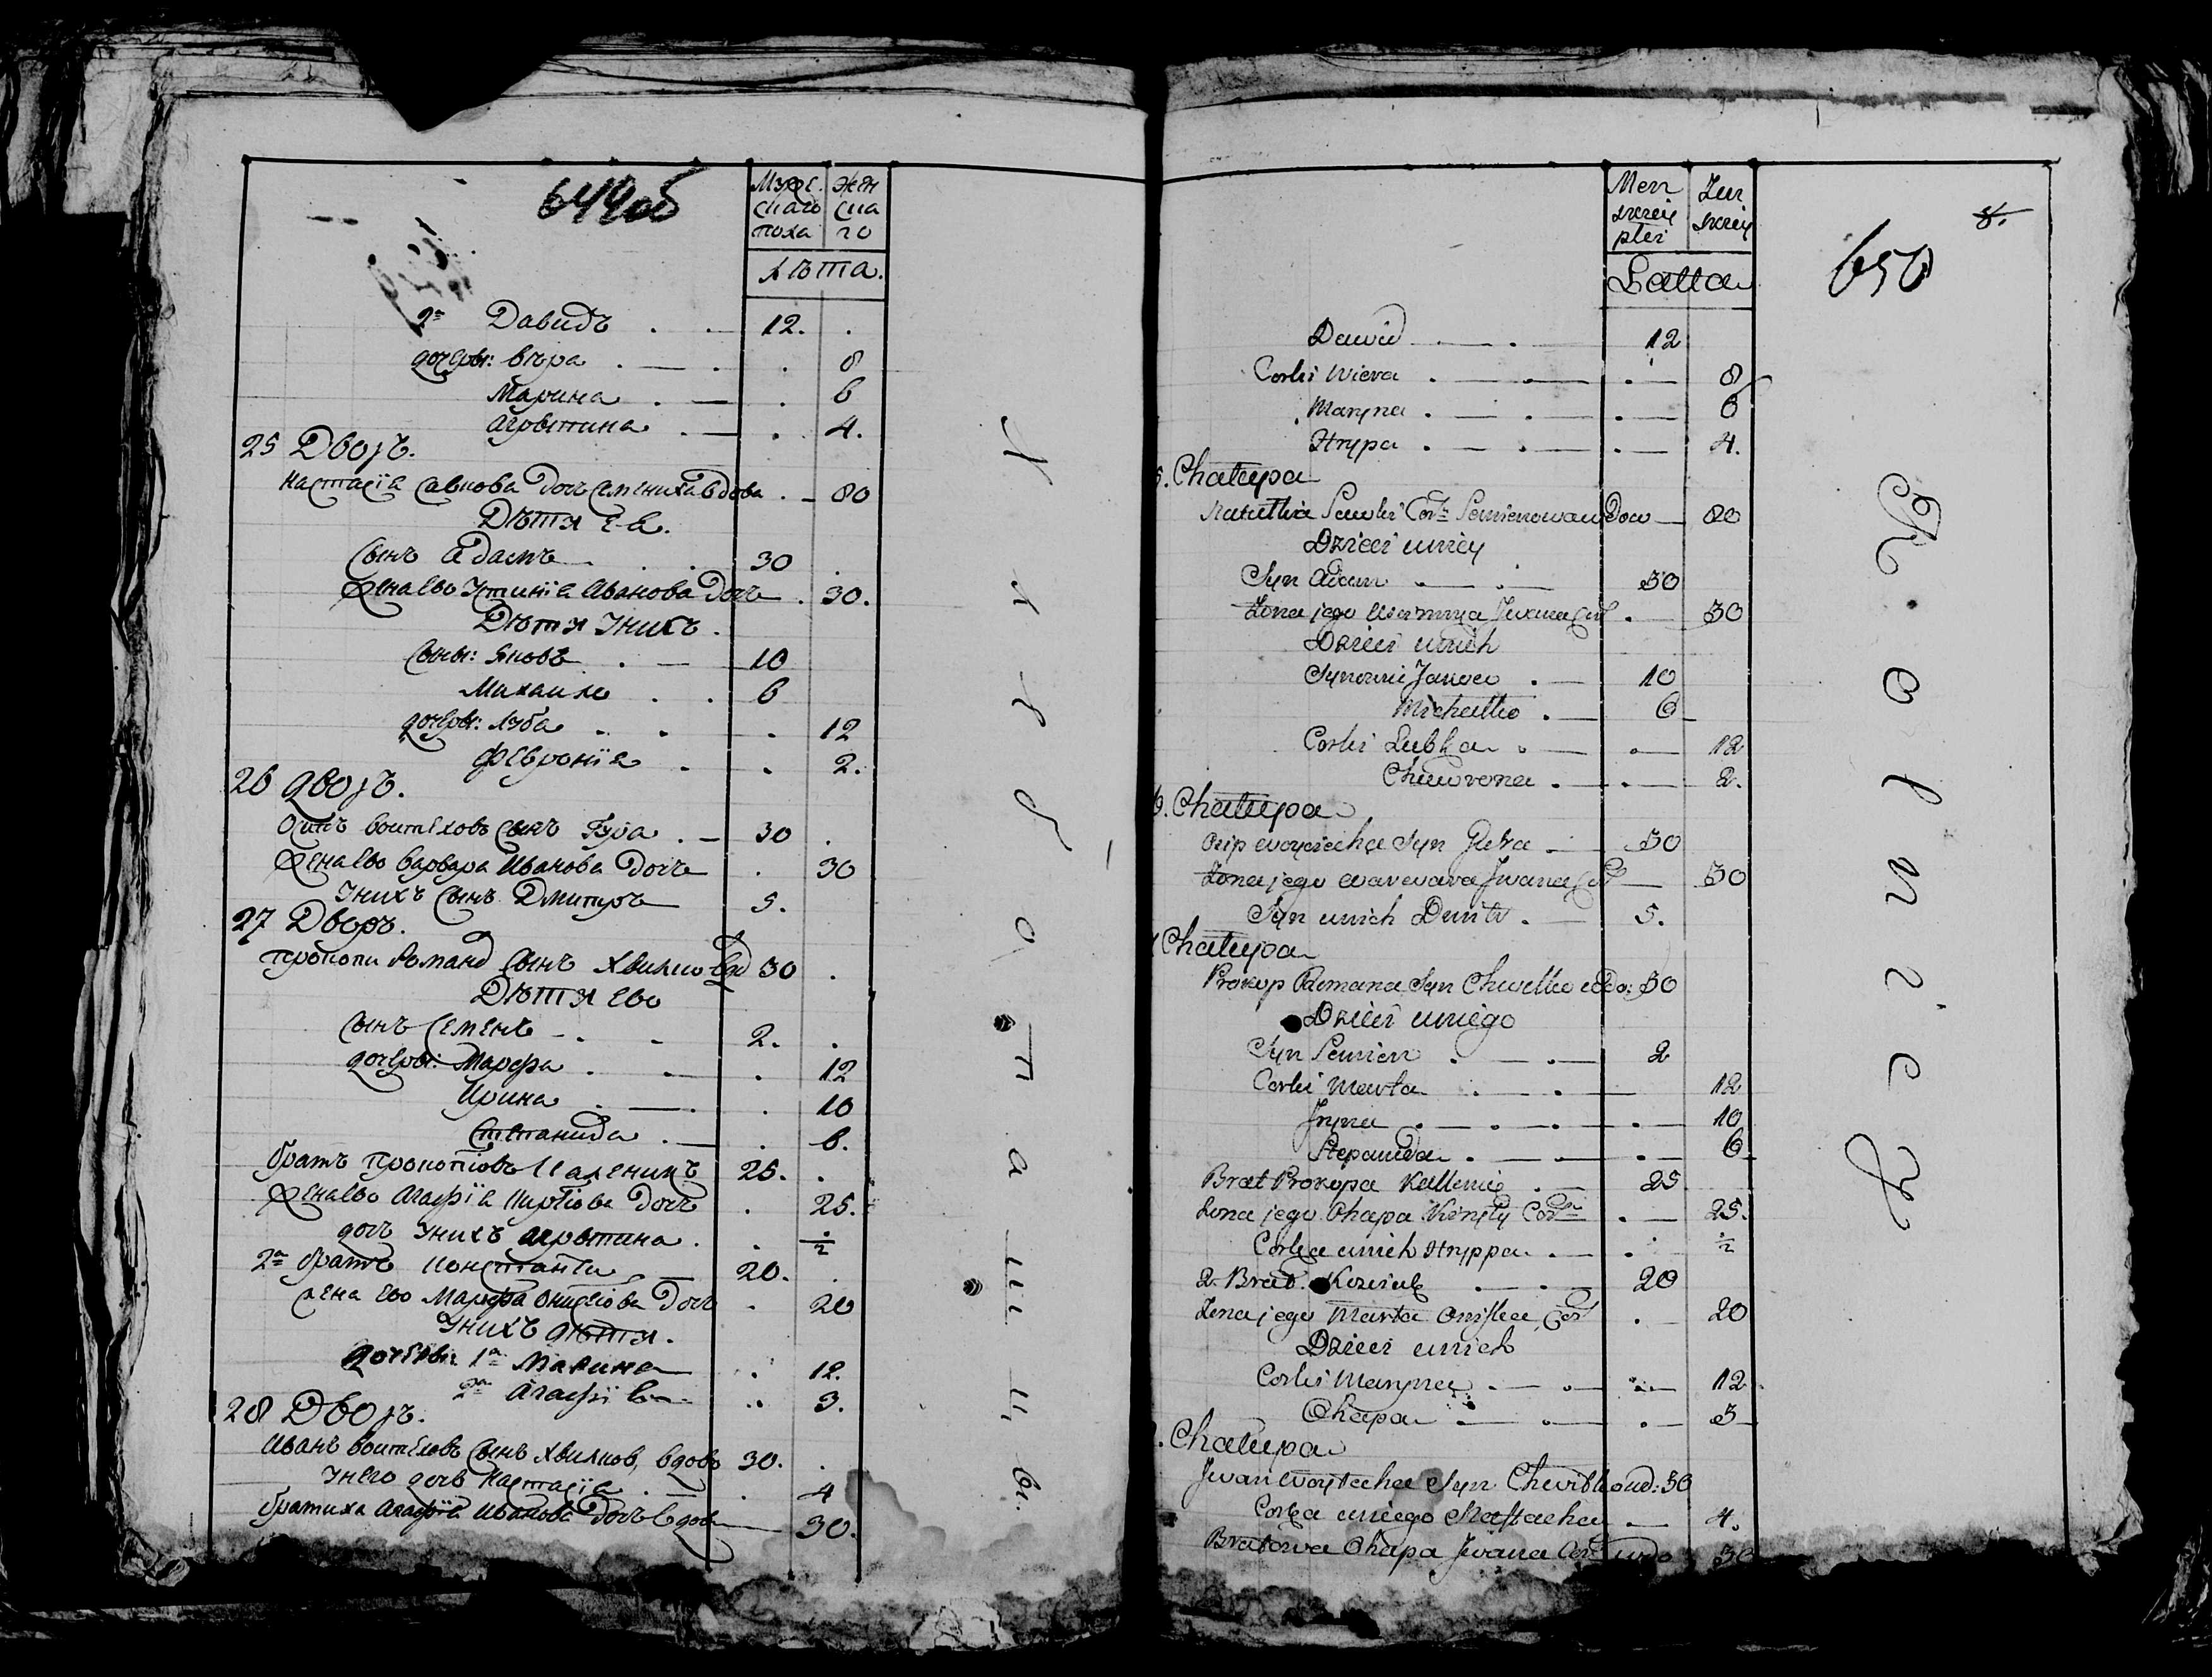 649об
Мужескаго пола
Женскаго
Лѣта.
2й Давидъ . — 12. .
дочеры: Вѣра . — . . 8
Марина . — . 6
Агрыпина . — . 4.
25 Дворъ.
Настасіѧ Савкова дочъ Семениха вдова . — 80
Дѣти Еѧ.
Сынъ Адамъ . . 30 .
Жена Ево Устиніѧ Иванова дочъ . 30.
Дѣти Унихъ.
Сыны: Яковъ . — 10
Михаило . . 6
дочеры: Люба . . . 12
Февроніѧ . . 2.
26 дворъ.
Осипъ Воитеховъ Сынъ Гура . — 30 .
Жена Ево Варвара Иванова Дочъ . 30
Унихъ Сынъ Дмитръ 5.
27 Дворъ.
Прокопи Романов Сынъ Хвилко вдо 30 .
Дѣти Ево
Сынъ Семенъ — . — 2. .
дочеры: Марфа . — . 12
Ирина . — . . 10
Степанида . — . 6.
братъ Прокопіовъ Каленикъ 25. .
Жена Ево Агафіѧ Карпова Дочъ . 25.
дочъ Унихъ Агрыпина . . ½
2й братъ Константи — 20. .
Жена Ево Марфа Онисиова Дочъ . 20
Унихъ дѣти.
Дочеры: 1я Марина . 12.
2я Агафіѧ — .. 3.
28 Дворъ.
Иванъ Воитеховъ Сынъ Хвилков, вдовъ 30. .
Унего дочъ Настасіѧ . — . 4
братиха Агафіѧ Иванова Дочъ вдов — 30.
Хлѣбопашцы.
Męzkiey płci
Żenzkiey
Latta
8.
650
Dawid . — . 12
Corki Wiera . — . — . — 8
Maryna . — . — . — 6
Hrypa . — . — . — 4.
5. Chałupa
Nastazia Sawki Cor: Semienowa wdow — 80
Dzieci uniey
Syn Adam . — . — 30
Żona jego Ustinnia Iwana Cor . — 30
Dzieci unich
Synowie Jakow . — 10
Michałko . — 6
Corki Lubka . — . — 12
Chawrona . — . — 2.
6. Chałupa
Osip Woyciecha Syn Hura — 30
Żona jego Warwara Iwana Cor — 30
Syn unich Dmitr . — 5.
7 Chałupa
Prokop Romana Syn Chwilko wdo: 30
Dzieci uniego
Syn Semien . — . — 2
Corki Marta . — . — 12
Iryna . — . — . — . — 10
Stepanida . — . — 6
Brat Prokopa Kallenik . — 25
Żona jego Ohapa Karpa Cor — . — 25.
Corka unich Hryppa . — . ½
2. Brat. Koziuk . — . — 20
Żona jego Marta Oniska Cor . — 20
Dzieci unich
Corki Maryna . — . — . — 12
Ohapa — . — . — 3
8. Chałupa
Iwan Woytecha Syn Chwilko wd: 30
Corka uniego Nastacha . — 4.
Bratowa Ohapa Iwana Cor wdo 30
Kolnicy